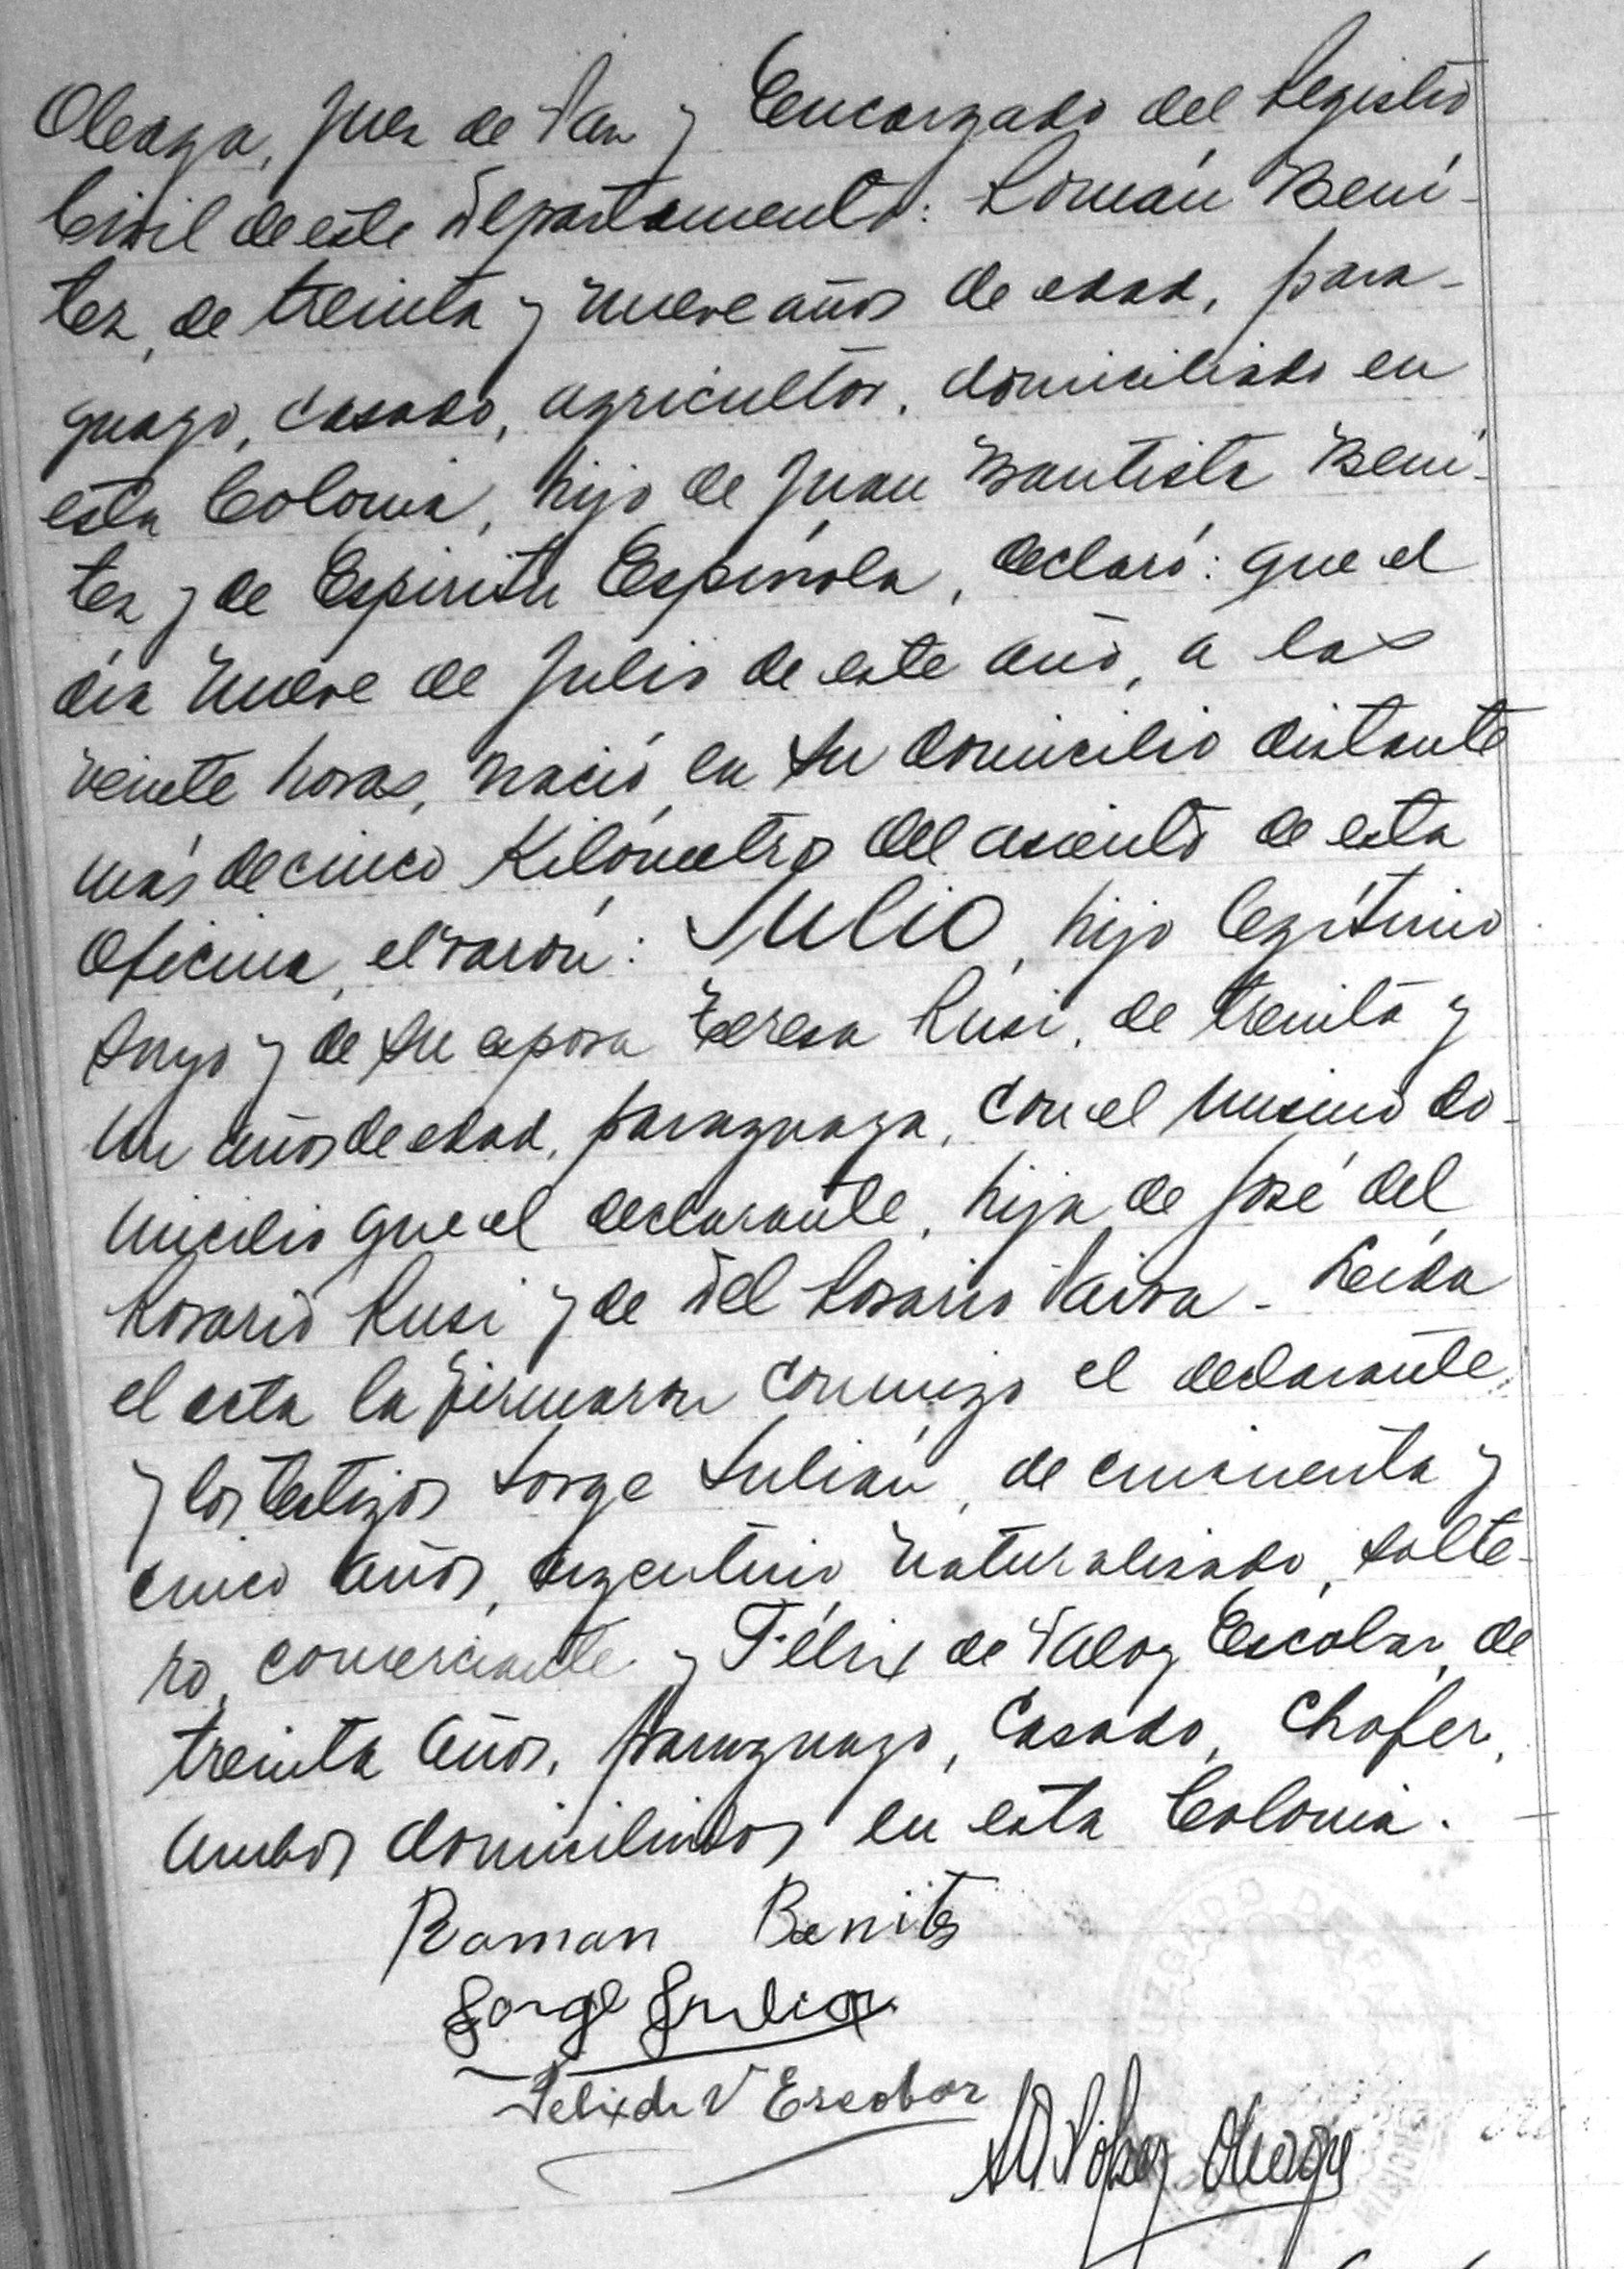 Oleaga, Juez de Paz y Encargado del Registro
Civil de este Departamento: Román Bení-
tez, de treinta y nueve años de edad, para-
guayo, casado, agricultor, domiciliado en
esta Colonia, hijo de Juan Bautista Bení-
tez y de Espíritu Espínola, declaró: que el
día nueve de Julio de este año, a las
veinte horas, nació en su domicilio distante
más de cinco Kilómetros del asiento de esta
Oficina, el varón: JULIO, hijo legítimo
suyo y de su esposa Teresa Rusi, de treinta y
un años de edad, paraguaya, con el mismo do-
micilio que el declarante, hija de José del
Rosario Rusi y de Del Rosario Paiva - Leída
el acta la firmaron conmigo el declarante,
y los testigos Jorge Julián, de cincuenta y
cinco años, argentino naturalizado, solte-
ro, comerciante y Félix de Valoy Escobar, de
treinta años, paraguayo, casado, chofer,
ambos domiciliados en esta Colonia.
Roman Benites
Jorge Julian
Felix de V Escobar
López Oleaga
MISIONES